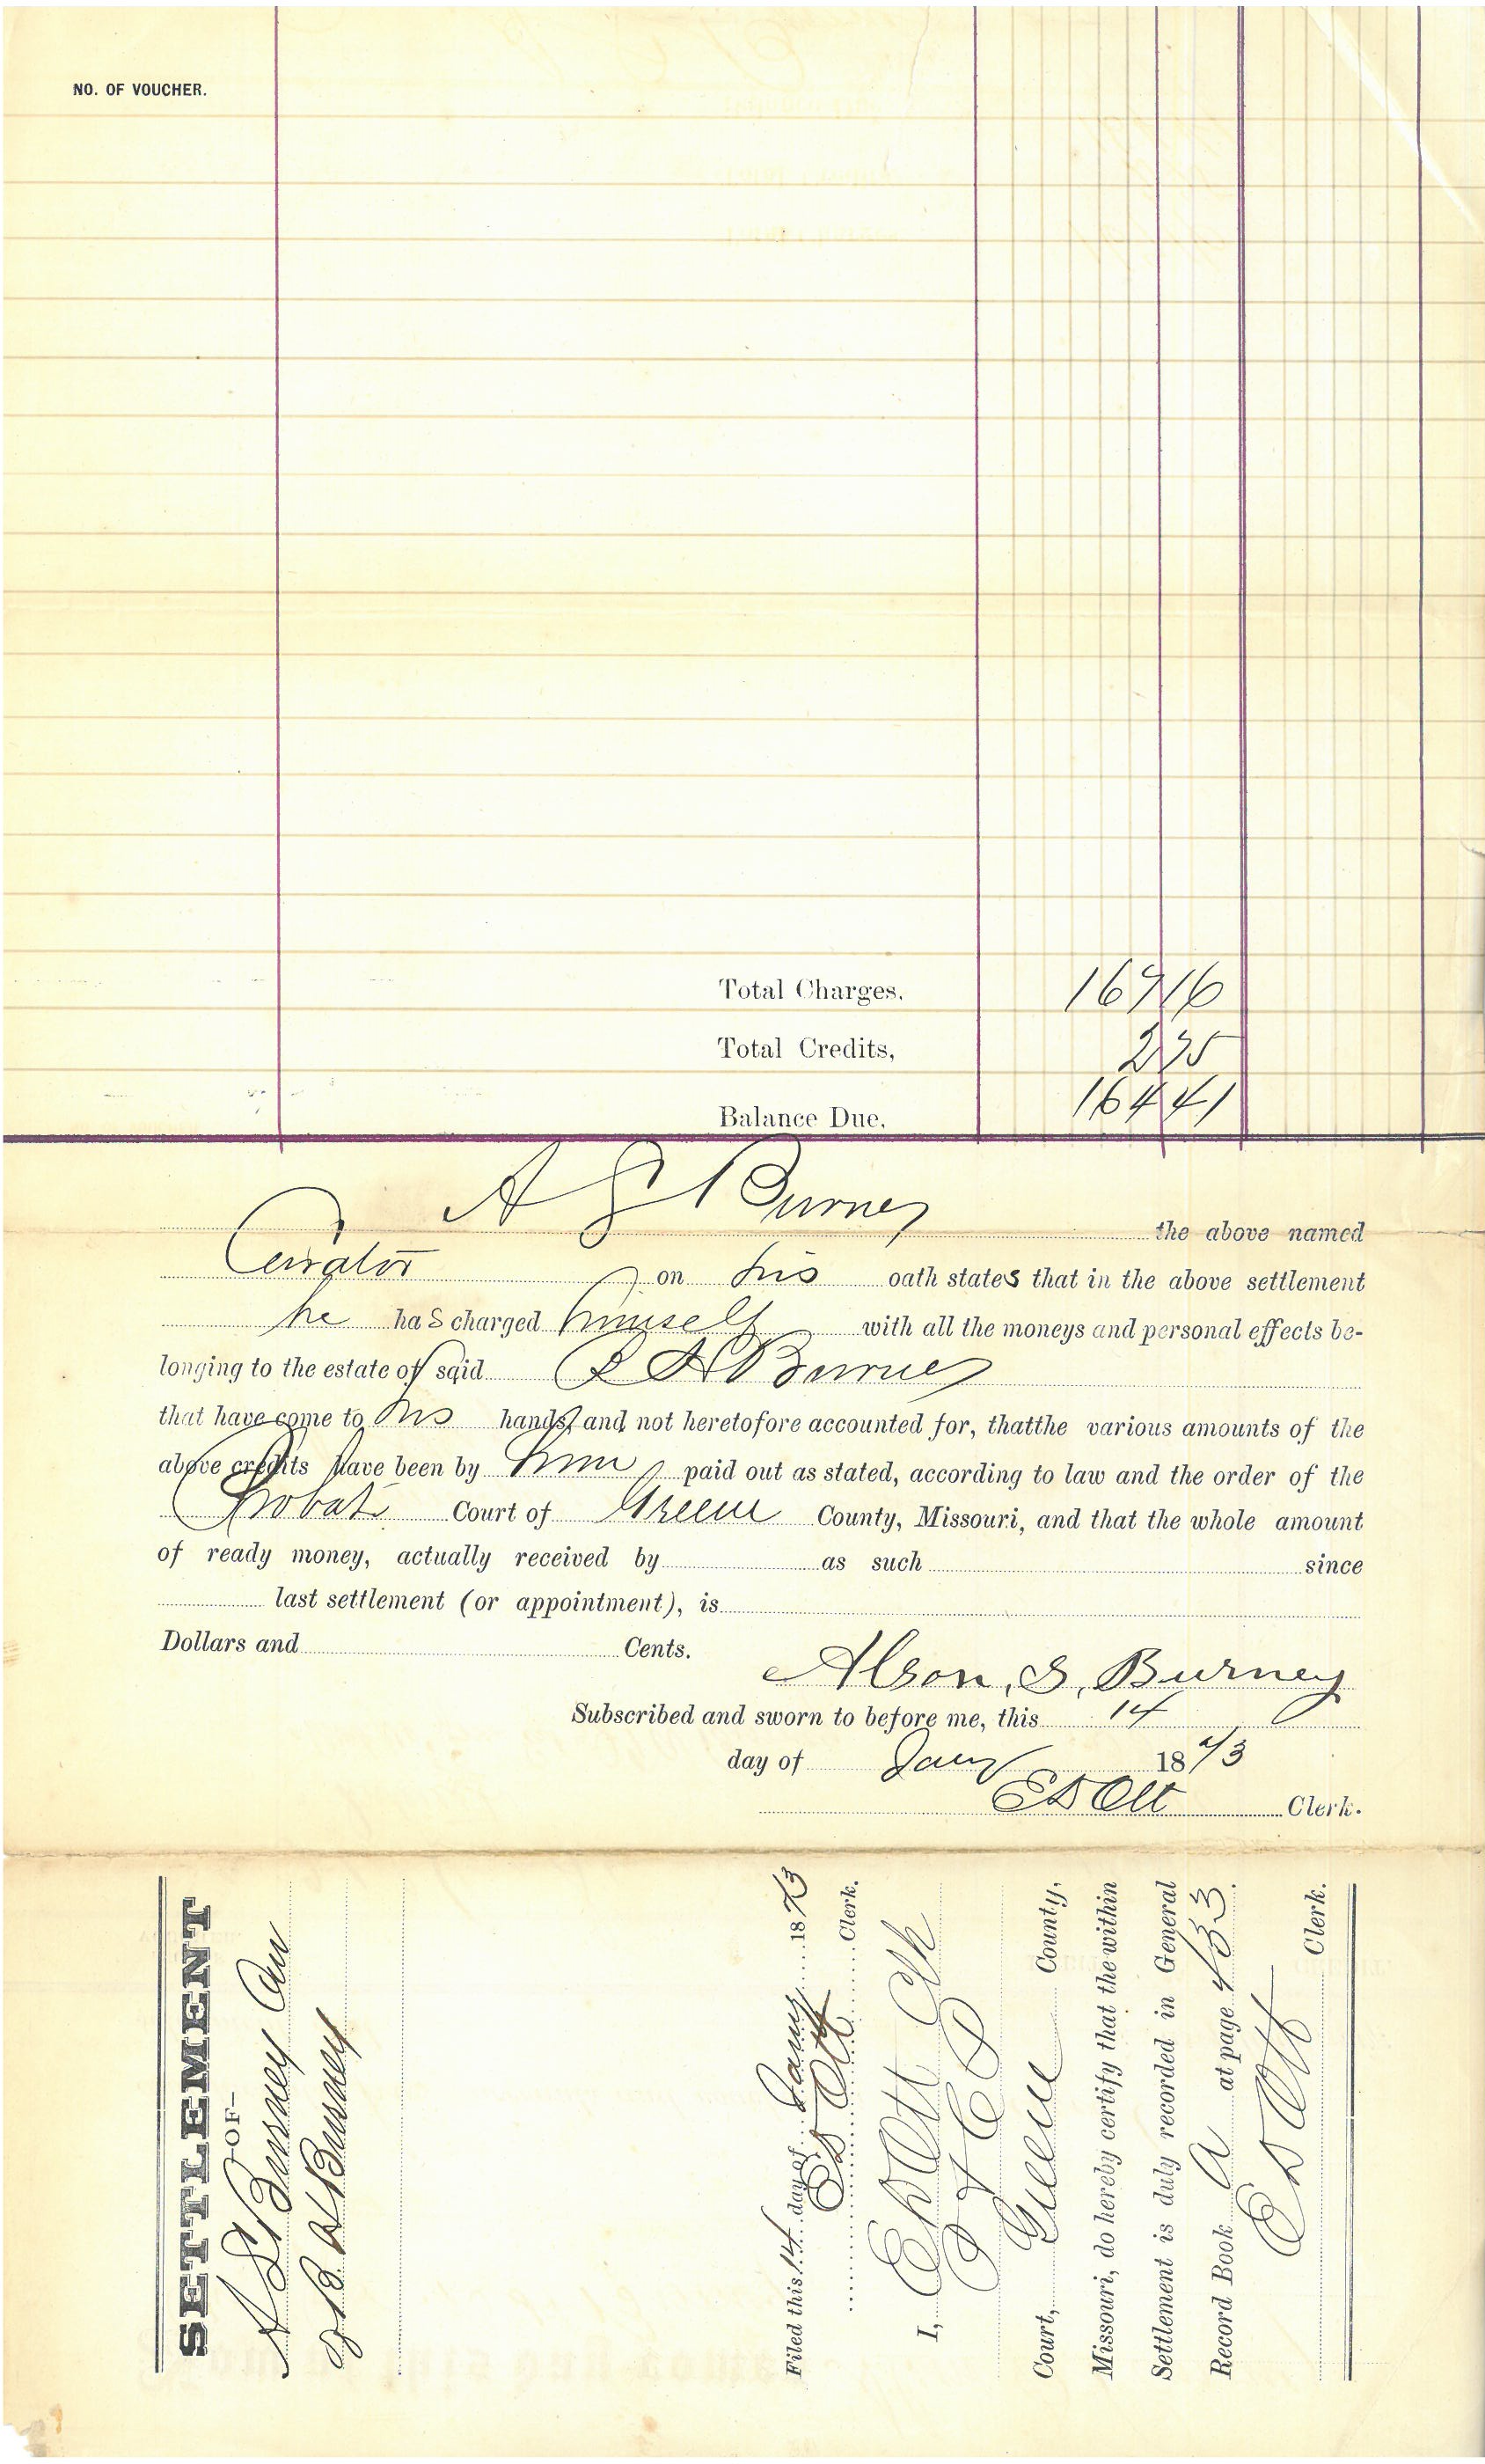 NO. OF VOUCHER.
Total Charges. 167 16
Total Credits, 2 75
Balance Due. 164 41
A S Burney the above named
Curator on his oath states that in the above settlement
he has charged himself with all the moneys and personal effects be-
longing to the estate of said B H Burney
that have come to his hands, and not heretofore accounted for, thatthe various amounts of the
above credits have been by him paid out as stated, according to law and the order of the
Probate Court of Greene County, Missouri, and that the whole amount
of ready money, actually received by as such since
last settlement (or appointment), is
Dollars and Cents.
Alson, S, Burney
Subscribed and sworn to before me, this 14
day of Jany 1873
E D Ott Clerk.
SETTLEMENT
—OF—
A S Burney Cur
of B H Burney
Filed this 14 day of Jany 1873
E D Ott Clerk.
I, E D Ott Clk
Court, Greene County,
Missouri, do hereby certify that the within
Settlement is duly recorded in General
Record Book A at page 433.
E D Ott Clerk.